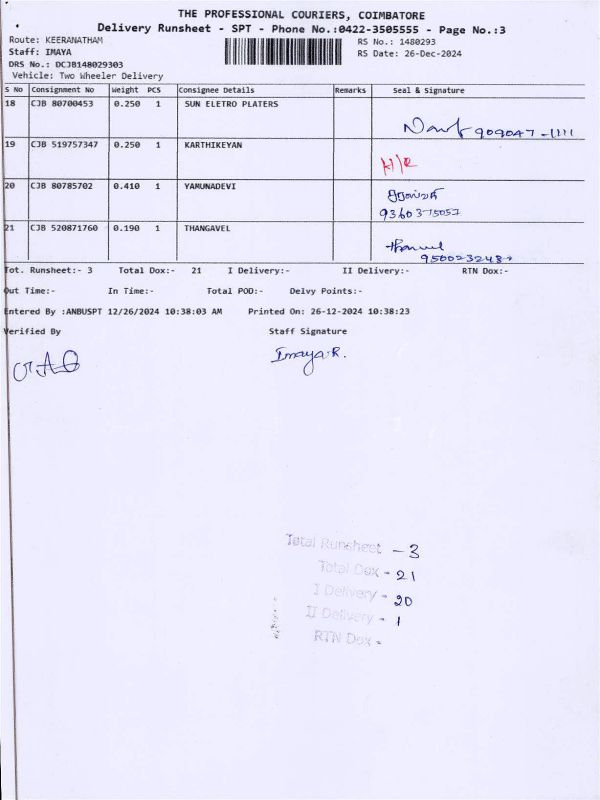 THE PROFESSIONAL COURIERS, COIMBATORE
Delivery Runsheet - SPT - Phone No.:0422-3505555 - Page No.:3
Route: KEERANATHAM
RS No.: 1480293
Staff: IMAYA
RS Date: 26-Dec-2024
DRS No.: DCJB148029303
Vehicle: Two Wheeler Delivery
S No Consignment No Weight PCS Consignee Details Remarks Seal & Signature
18 CJB 80700453 0.250 1 SUN ELETRO PLATERS
909047-1111
19 CJB 519757347 0.250 1 KARTHIKEYAN
20 CJB 80785702 0.410 1 YAMUNADEVI
21 CJB 520871760 0.190 1 THANGAVEL
Tot. Runsheet:- 3 Total Dox:- 21 I Delivery:- II Delivery:- RTN Dox:-
Out Time:- In Time:- Total POD:- Delvy Points:-
Entered By :ANBUSPT 12/26/2024 10:38:03 AM Printed On: 26-12-2024 10:38:23
Verified By Staff Signature
Imaya.R.
Total Runsheet - 3
Total Dox - 21
I Delivery - 20
II Delivery - 1
RTN Dox -